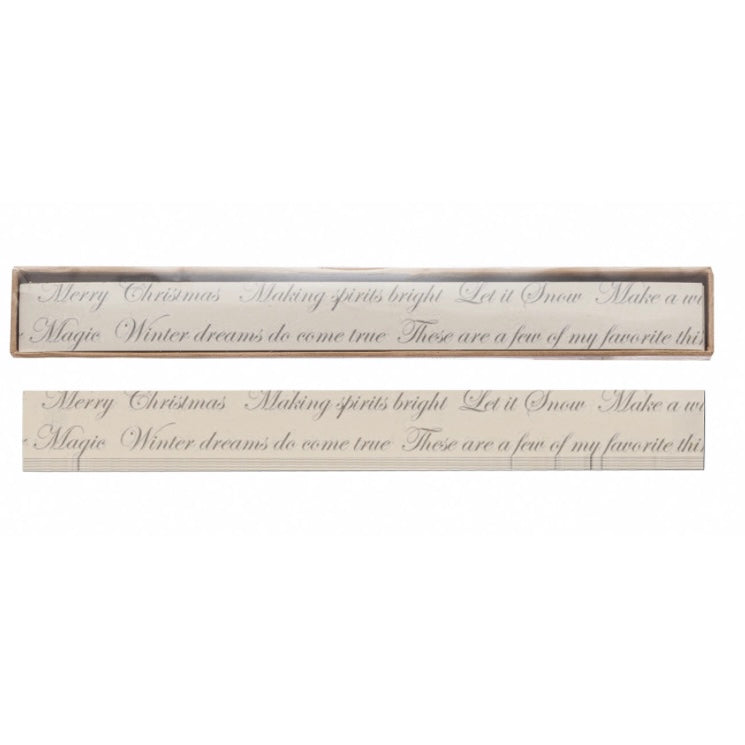 Merry Christmas Making spirits bright Let it Snow Make a
Magic Winter dreams do come true These are a few of my favorite
Merry Christmas Making spirits bright Let it Snow Make a
Magic Winter dreams do come true These are a few of my favorite